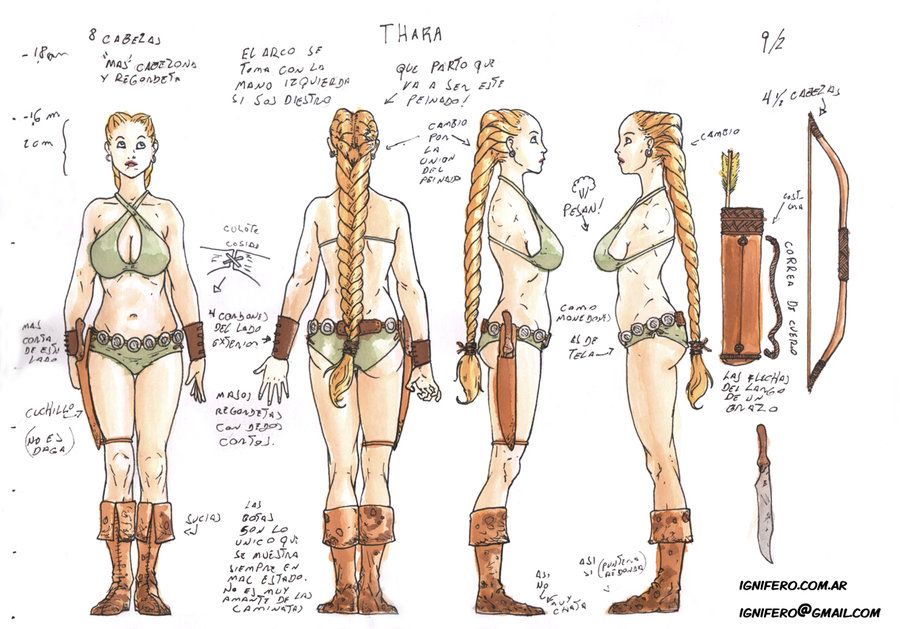 THARA
9/2
8 CABEZAS
"MAS" CABEZONA
Y REGORDETA
EL ARCO SE
TOMA CON LA
MANO IZQUIERDA
SI SOS DIESTRO
QUE PARTO QUE
VA A SER ESTE
PEINADO!
4 1/2 CABEZAS
CAMBIO
POR
LA
UNION
DEL
PEINADO
CAMBIO
PESAN!
COSTURA
CORREA DE CUERO
COSIDO
4 CORDONES
DEL LADO
EXTERIOR
COMO
MONEDAS
AS DE
TELA
MAS
CORTA
DE ESTE
LADO
CUCHILLO
(NO ES
DAGA)
MANOS
REGORDETAS
CON DEDOS
CORTOS.
LAS FLECHAS
DEL LARGO
DE UN
BRAZO
SUCIAS
LAS
BOTAS
SON LO
UNICO QUE
SE MUESTRA
SIEMPRE EN
MAL ESTADO.
NO ES MUY
AMANTE DE LAS
CAMINATAS
ASI
NO
MUY
CHATA
ASI
SI
(PUNTERA
REDONDA)
IGNIFERO.COM.AR
IGNIFERO@GMAIL.COM